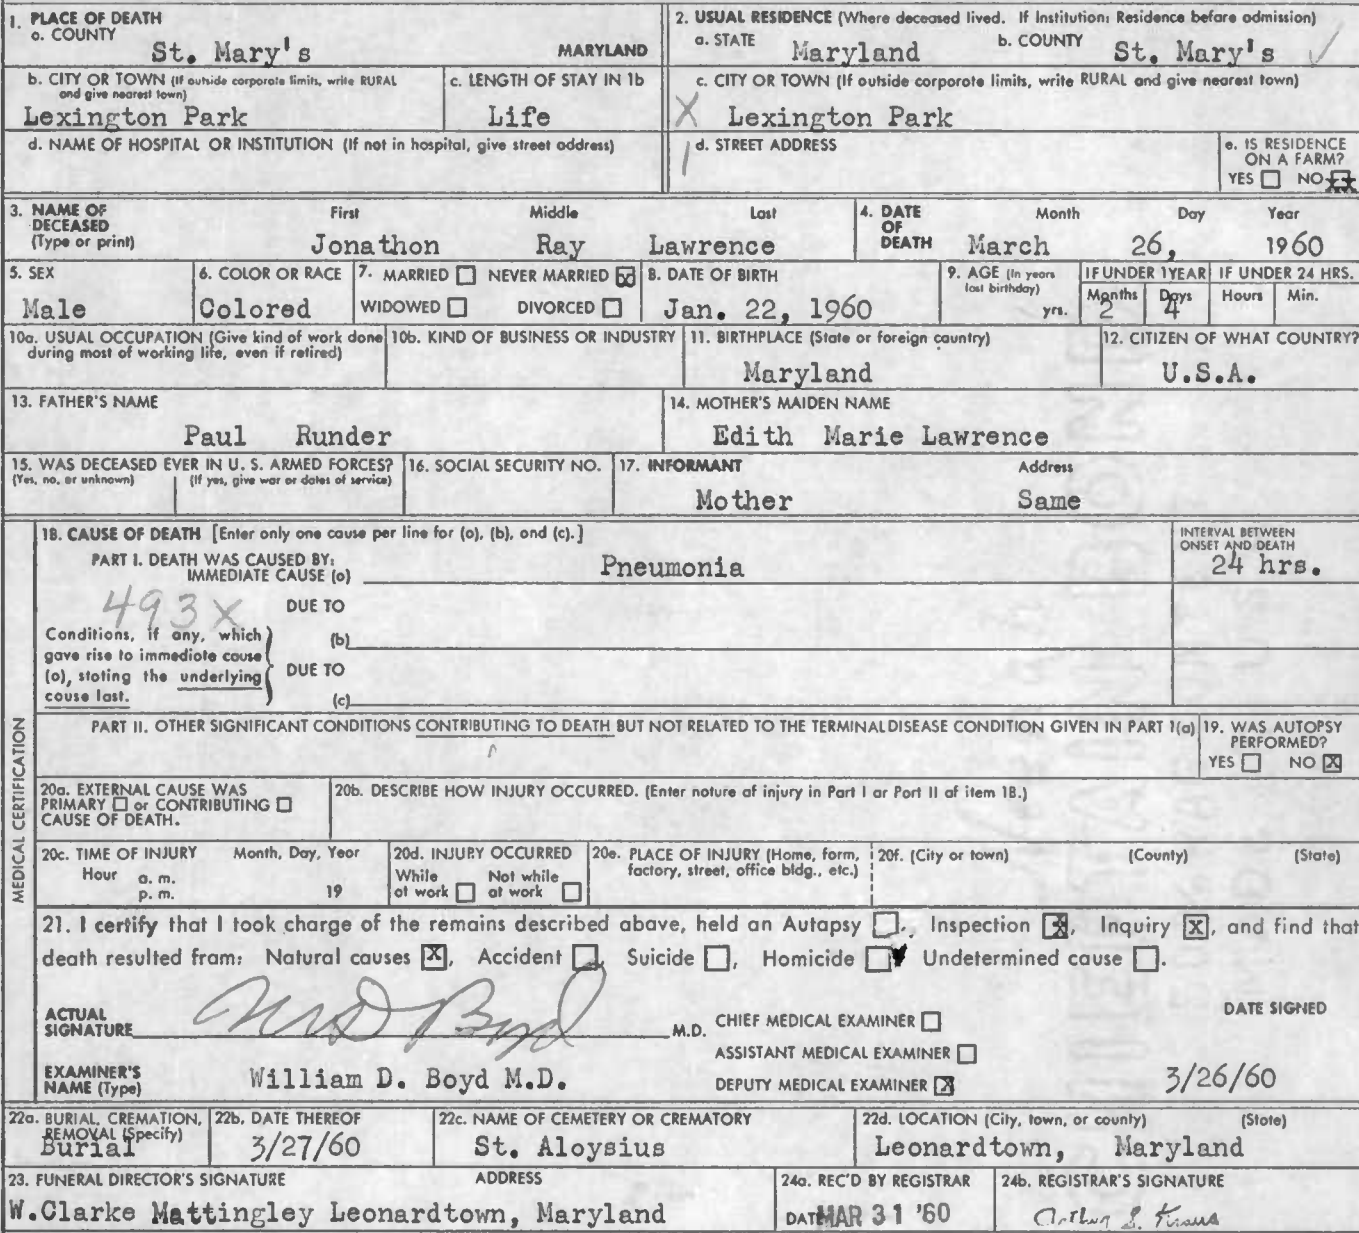 1. PLACE OF DEATH
a. COUNTY St. Mary's MARYLAND
2. USUAL RESIDENCE (Where deceased lived. If Institution: Residence before admission)
a. STATE Maryland b. COUNTY St. Mary's ✓
b. CITY OR TOWN (If outside corporate limits, write RURAL and give nearest town)
Lexington Park
c. LENGTH OF STAY IN 1b
Life
c. CITY OR TOWN (If outside corporate limits, write RURAL and give nearest town)
X Lexington Park
d. NAME OF HOSPITAL OR INSTITUTION (If not in hospital, give street address)
d. STREET ADDRESS
e. IS RESIDENCE ON A FARM?
YES NO XX
3. NAME OF DECEASED (Type or print)
First Middle Last
Jonathon Ray Lawrence
4. DATE OF DEATH
Month Day Year
March 26, 1960
5. SEX
Male
6. COLOR OR RACE
Colored
7. MARRIED NEVER MARRIED X
WIDOWED DIVORCED
8. DATE OF BIRTH
Jan. 22, 1960
9. AGE (In years last birthday)
yrs.
IF UNDER 1 YEAR
Months Days
2 4
IF UNDER 24 HRS.
Hours Min.
10a. USUAL OCCUPATION (Give kind of work done during most of working life, even if retired)
10b. KIND OF BUSINESS OR INDUSTRY
11. BIRTHPLACE (State or foreign country)
Maryland
12. CITIZEN OF WHAT COUNTRY?
U.S.A.
13. FATHER'S NAME
Paul Runder
14. MOTHER'S MAIDEN NAME
Edith Marie Lawrence
15. WAS DECEASED EVER IN U. S. ARMED FORCES?
(Yes, no, or unknown) (If yes, give war or dates of service)
16. SOCIAL SECURITY NO.
17. INFORMANT Address
Mother Same
MEDICAL CERTIFICATION
18. CAUSE OF DEATH [Enter only one cause per line for (a), (b), and (c).]
INTERVAL BETWEEN ONSET AND DEATH
PART I. DEATH WAS CAUSED BY:
IMMEDIATE CAUSE (a) Pneumonia 24 hrs.
493X
DUE TO
Conditions, if any, which gave rise to immediate cause (a), stating the underlying cause last.
(b)
DUE TO
(c)
PART II. OTHER SIGNIFICANT CONDITIONS CONTRIBUTING TO DEATH BUT NOT RELATED TO THE TERMINAL DISEASE CONDITION GIVEN IN PART I(a)
19. WAS AUTOPSY PERFORMED?
YES NO X
20a. EXTERNAL CAUSE WAS PRIMARY or CONTRIBUTING CAUSE OF DEATH.
20b. DESCRIBE HOW INJURY OCCURRED. (Enter nature of injury in Part I or Part II of item 18.)
20c. TIME OF INJURY Month, Day, Year
Hour a. m.
p. m. 19
20d. INJURY OCCURRED
While at work Not while at work
20e. PLACE OF INJURY (Home, farm, factory, street, office bldg., etc.)
20f. (City or town) (County) (State)
21. I certify that I took charge of the remains described above, held an Autopsy , Inspection X, Inquiry X, and find that
death resulted from: Natural causes X, Accident , Suicide , Homicide Undetermined cause .
ACTUAL SIGNATURE Wm D Boyd M.D.
CHIEF MEDICAL EXAMINER
ASSISTANT MEDICAL EXAMINER
DEPUTY MEDICAL EXAMINER X
DATE SIGNED
3/26/60
EXAMINER'S NAME (Type) William D. Boyd M.D.
22a. BURIAL, CREMATION, REMOVAL (Specify)
Burial
22b. DATE THEREOF
3/27/60
22c. NAME OF CEMETERY OR CREMATORY
St. Aloysius
22d. LOCATION (City, town, or county) (State)
Leonardtown, Maryland
23. FUNERAL DIRECTOR'S SIGNATURE ADDRESS
W.Clarke Mattingley Leonardtown, Maryland
24a. REC'D BY REGISTRAR
DATE MAR 31 '60
24b. REGISTRAR'S SIGNATURE
Arthur S. Kraus